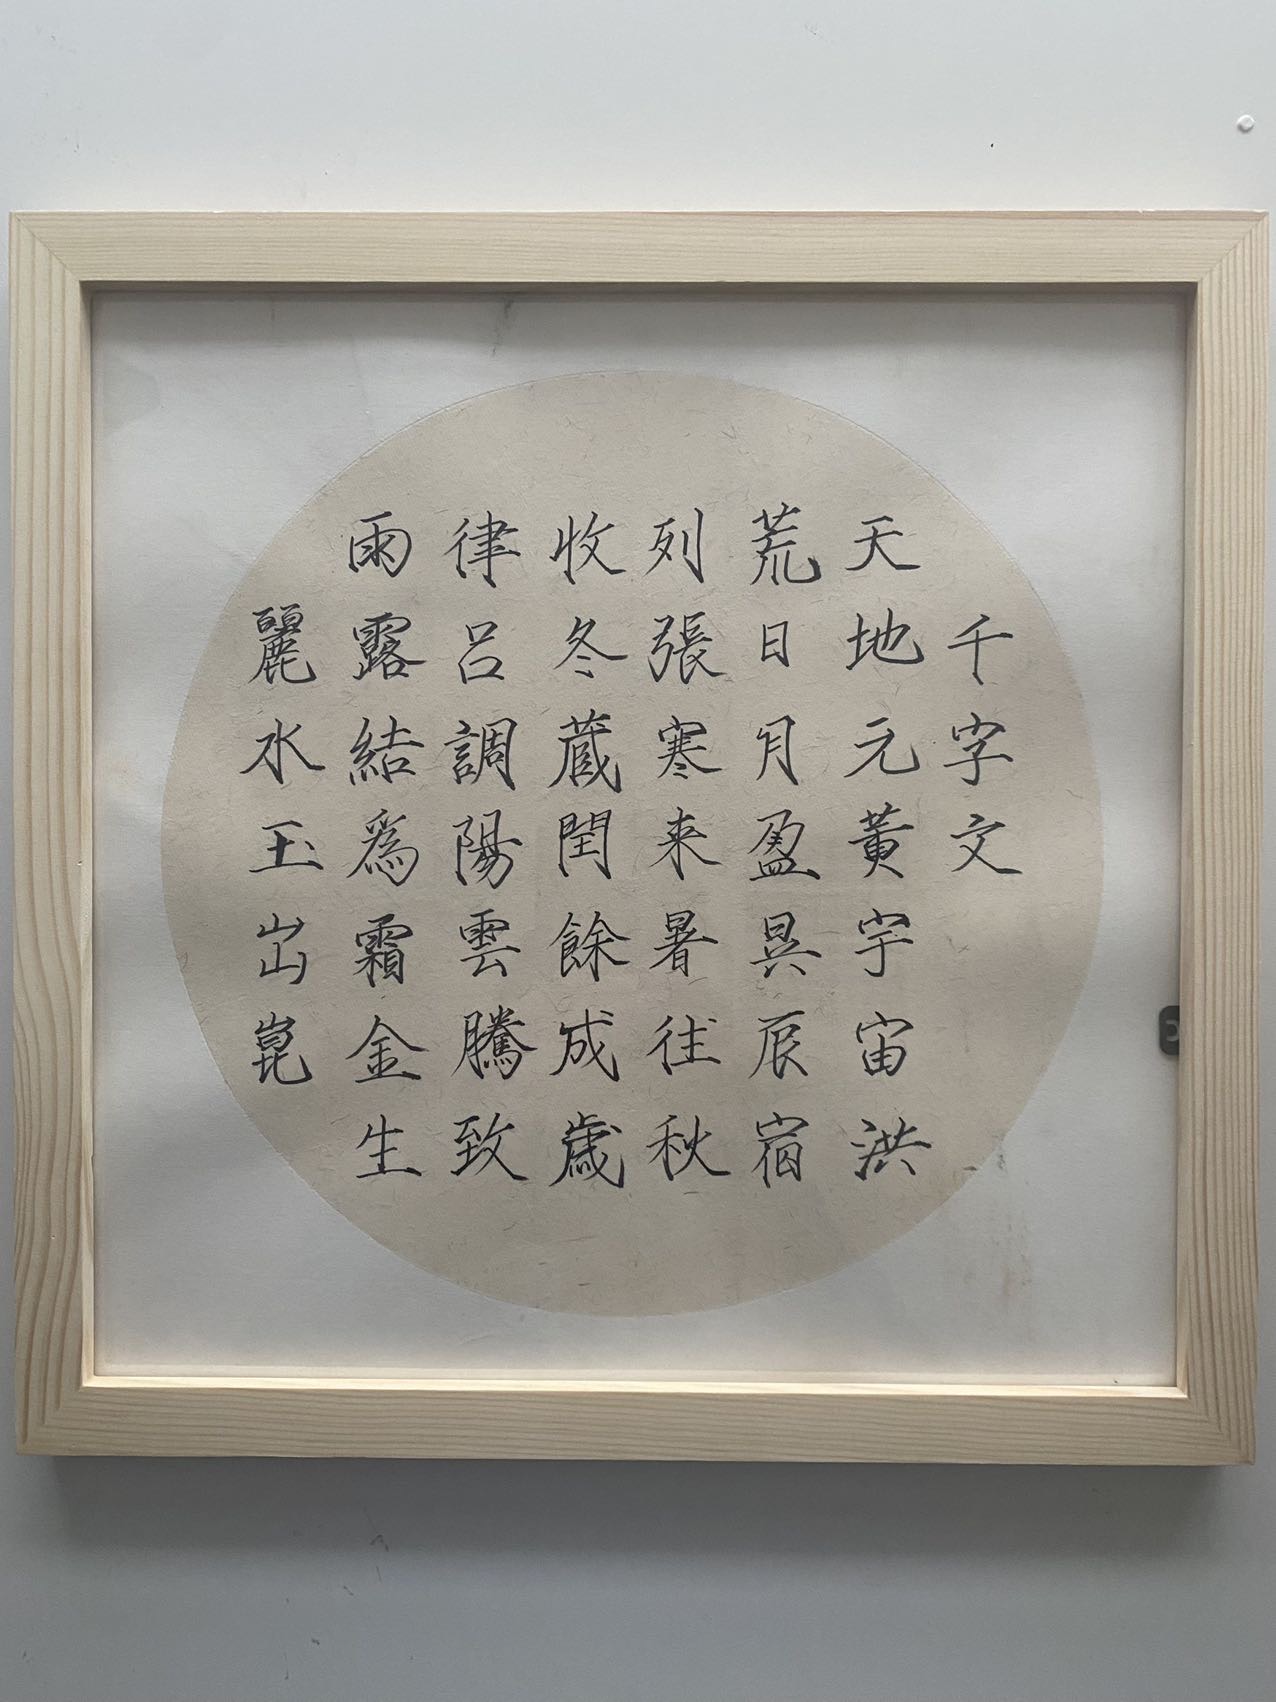 千字文
天地元黄宇宙洪
荒日月盈昃辰宿
列張寒来暑往秋
收冬蔵閏餘成歳
律呂調陽雲騰致
雨露結爲霜金生
麗水玉出崑